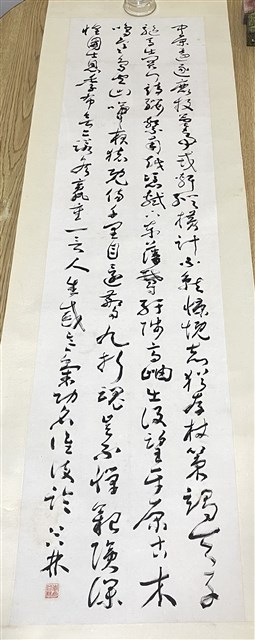 中原還逐鹿投筆事戎軒縱橫計不就慷慨志猶存杖策謁天子
驅馬出關門請纓繫南越憑軾下東藩鬱紆陟高岫出沒望平原古木
鳴寒鳥空山啼夜猿既傷千里目還驚九折魂豈不憚艱險深
懷國士恩季布無二諾侯嬴重一言人生感意氣功名誰復論